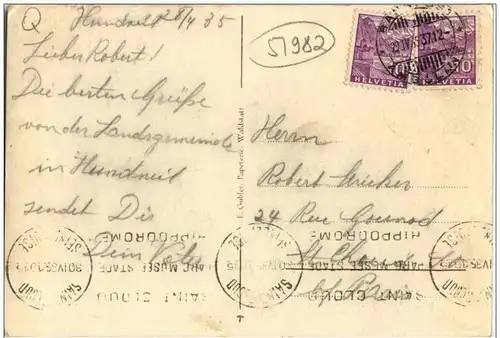 Q
Hundwil 28/4 35
Lieber Robert!
Die besten Grüße
von der Landsgemeinde
in Hundwil
sendet Dir
Dein Vater
51982
HELVETIA
HELVETIA
10
E. Gubler, Papeterie, Waldstatt
Herrn
Robert Stricker
24 Rue Gounod
St. Cloud
b/ Paris
HIPPODROME
HIPPODROME
PARC MUSEE STADE
PARC MUSEE STADE
SAINT CLOUD
SAINT CLOUD